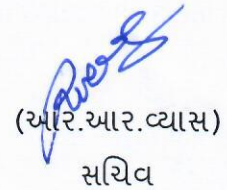 (આર.આર.વ્યાસ)
સચિવ